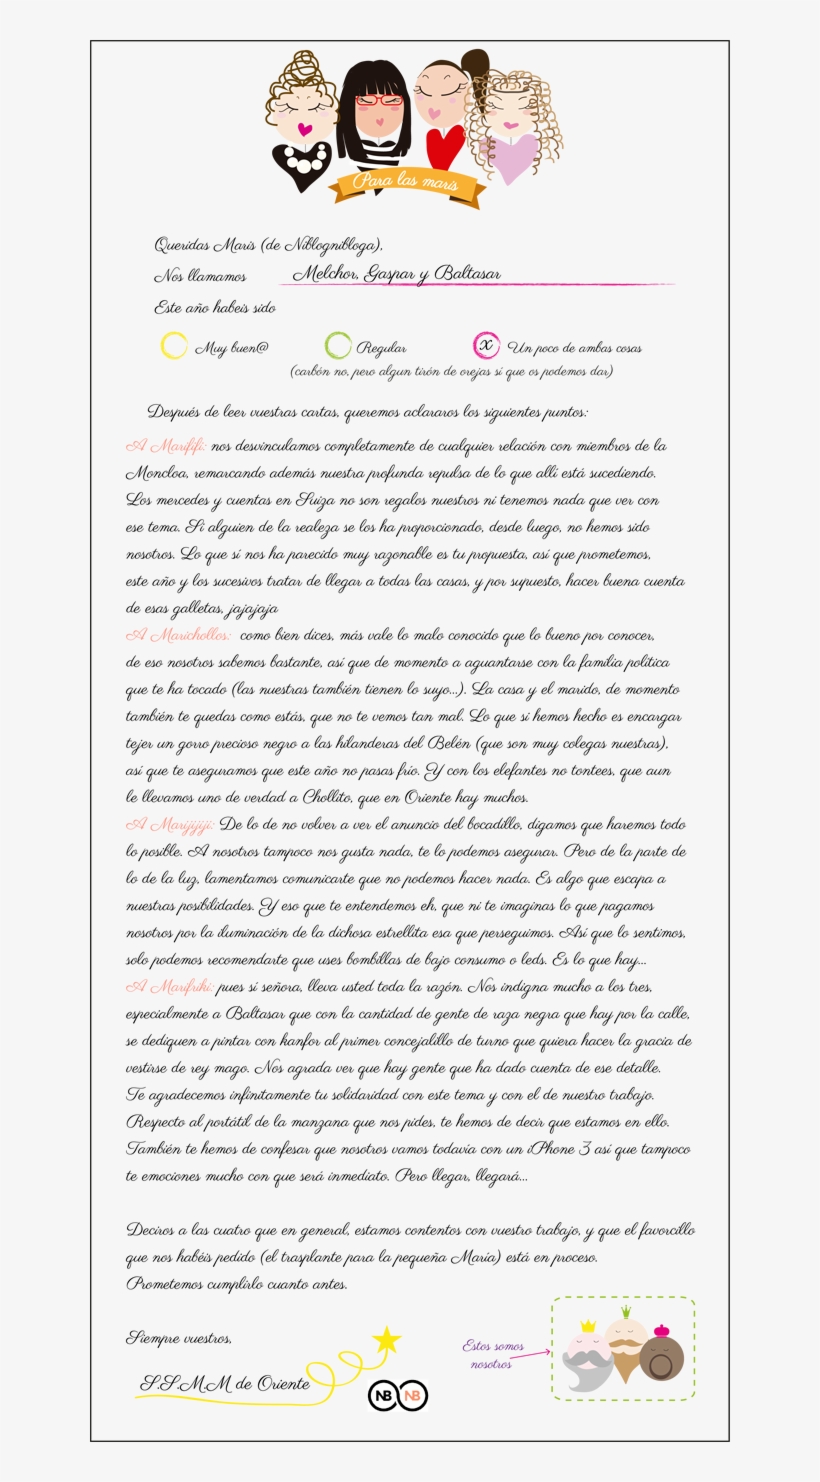 Para las maris
Queridas Maris (de Niblognibloga),
Nos llamamos Melchor, Gaspar y Baltasar
Este año habeis sido
Muy buen@ Regular x Un poco de ambas cosas
(carbón no, pero algun tirón de orejas si que os podemos dar)
Después de leer vuestras cartas, queremos aclararos los siguientes puntos:
A Marififi: nos desvinculamos completamente de cualquier relación con miembros de la
Moncloa, remarcando además nuestra profunda repulsa de lo que allí está sucediendo.
Los mercedes y cuentas en Suiza no son regalos nuestros ni tenemos nada que ver con
ese tema. Si alguien de la realeza se los ha proporcionado, desde luego, no hemos sido
nosotros. Lo que si nos ha parecido muy razonable es tu propuesta, así que prometemos,
este año y los sucesivos tratar de llegar a todas las casas, y por supuesto, hacer buena cuenta
de esas galletas, jajajaja
A Marichollos: como bien dices, más vale lo malo conocido que lo bueno por conocer,
de eso nosotros sabemos bastante, así que de momento a aguantarse con la familia política
que te ha tocado (las nuestras también tienen lo suyo...). La casa y el marido, de momento
también te quedas como estás, que no te vemos tan mal. Lo que si hemos hecho es encargar
tejer un gorro precioso negro a las hilanderas del Belén (que son muy colegas nuestras),
así que te aseguramos que este año no pasas frío. Y con los elefantes no tontees, que aun
le llevamos uno de verdad a Chollito, que en Oriente hay muchos.
A Marijijiji: De lo de no volver a ver el anuncio del bocadillo, digamos que haremos todo
lo posible. A nosotros tampoco nos gusta nada, te lo podemos asegurar. Pero de la parte de
lo de la luz, lamentamos comunicarte que no podemos hacer nada. Es algo que escapa a
nuestras posibilidades. Y eso que te entendemos eh, que ni te imaginas lo que pagamos
nosotros por la iluminación de la dichosa estrellita esa que perseguimos. Así que lo sentimos,
solo podemos recomendarte que uses bombillas de bajo consumo o leds. Es lo que hay...
A Marifriki: pues si señora, lleva usted toda la razón. Nos indigna mucho a los tres,
especialmente a Baltasar que con la cantidad de gente de raza negra que hay por la calle,
se dediquen a pintar con kanfor al primer concejalillo de turno que quiera hacer la gracia de
vestirse de rey mago. Nos agrada ver que hay gente que ha dado cuenta de ese detalle.
Te agradecemos infinitamente tu solidaridad con este tema y con el de nuestro trabajo.
Respecto al portátil de la manzana que nos pides, te hemos de decir que estamos en ello.
También te hemos de confesar que nosotros vamos todavía con un iPhone 3 así que tampoco
te emociones mucho con que será inmediato. Pero llegar, llegará...
Deciros a las cuatro que en general, estamos contentos con vuestro trabajo, y que el favorcillo
que nos habéis pedido (el trasplante para la pequeña María) está en proceso.
Prometemos cumplirlo cuanto antes.
Siempre vuestros,
S.S.M.M de Oriente
NB NB
Estos somos
nosotros